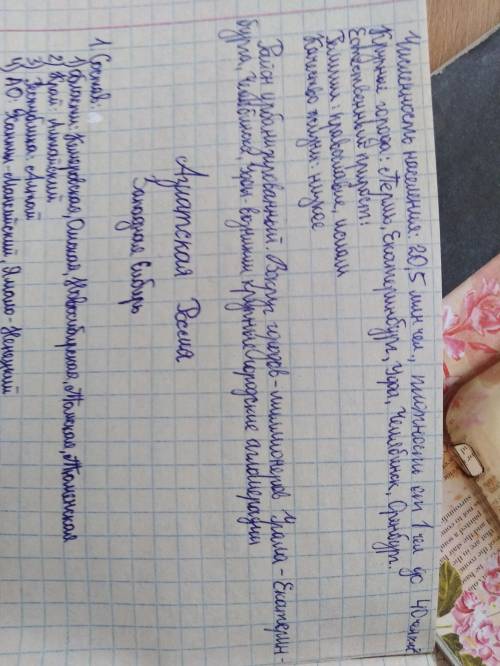 Численность населения: 20,5 млн чел., плотность от 1 чел до 40 чел/км²
Крупные города: Пермь, Екатеринбург, Уфа, Челябинск, Оренбург.
Естественный прирост:
Религия: православие, ислам
Качество жизни: низкое
Район урбанизированный. Вокруг городов-миллионеров Урала - Екатерин-
бурга, Челябинска, Уфы- возникли крупные городские агломерации
Азиатская Россия
Западная Сибирь
1. Состав:
1) Области: Кемеровская, Омская, Новосибирская, Томская, Тюменская
2) Край: Алтайский
3) Республика: Алтай
4) АО: Ханты-Мансийский, Ямало-Ненецкий